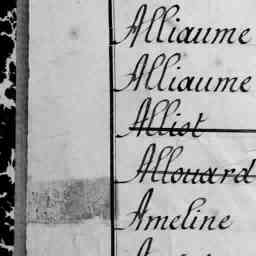 Alliaume
Alliaume
Alliot
Allouard
Ameline